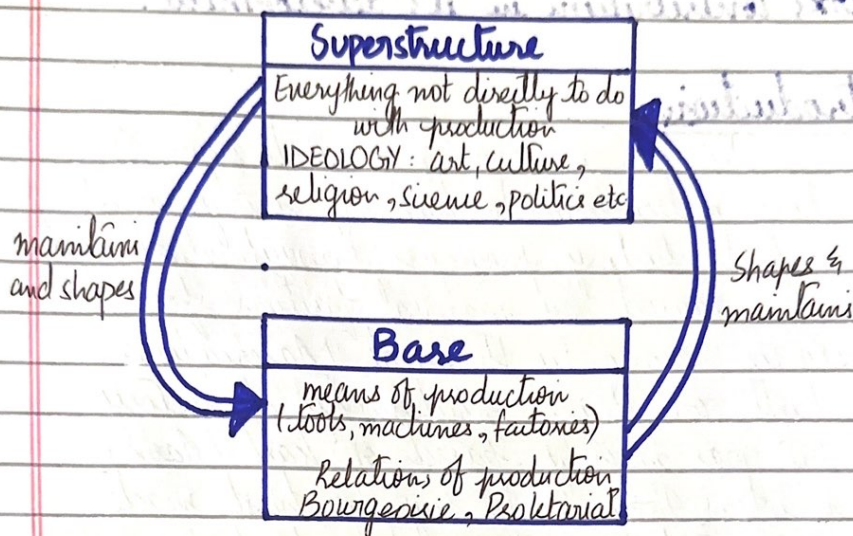 Superstructure
Everything not directly to do
with production
IDEOLOGY: art, culture,
religion, science, politics etc
maintains
and shapes
Shapes &
maintains
Base
means of production
(tools, machines, factories)
Relations of production
Bourgeoisie, Proletariat